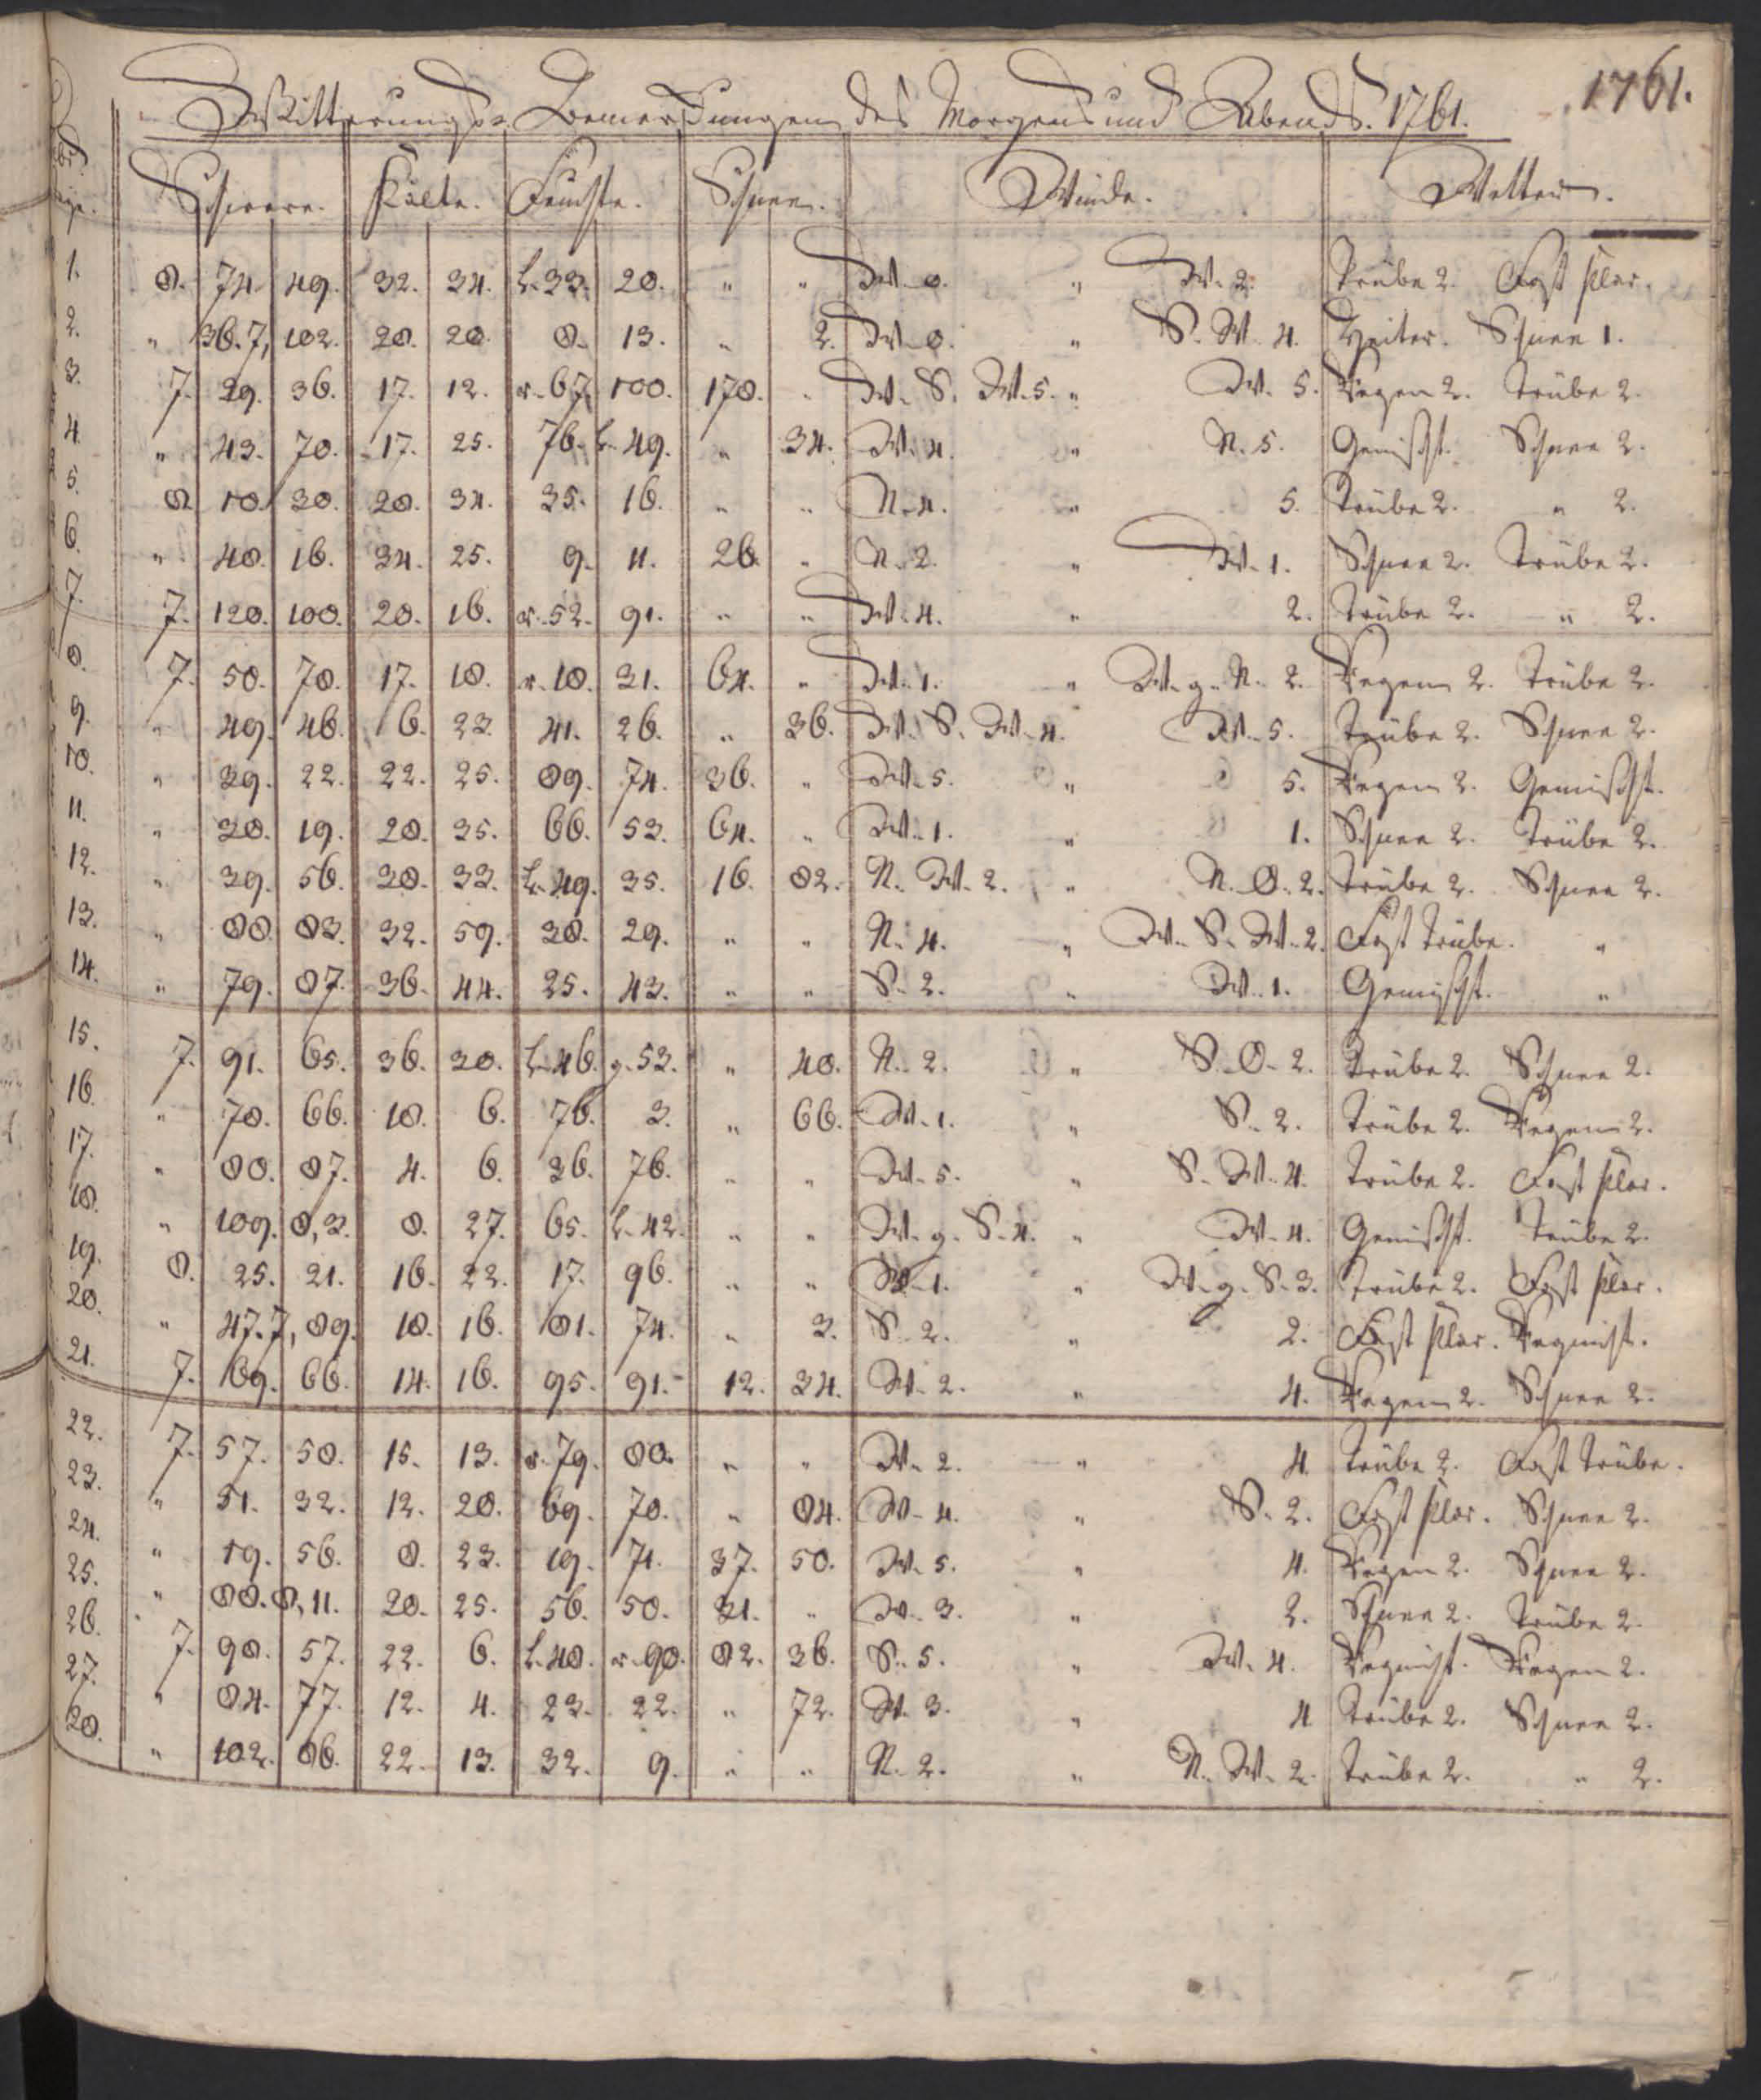 1761.
Witterungs-Bemerckungen des Morgens und Abends. 1761.
Schwere. Kälte. Feuchte. Schnee. Winde. Wetter.
1. 8. 74. 49. 32. 34. l. 33. 28. " " W. 0. " W. 2. Trübe 2. Fast klar.
2. " 36. 7, 102. 28. 20. 8. 13. " 2. W. 0. " S. W. 4. Heiter. Schnee 1.
3. 7. 29. 36. 17. 12. r. 67. 100. 178. " W. S. W. 5. " W. 5. Regen 2. Trübe 2.
4. " 43. 70. 17. 25. 76. l. 49. " 34. W. 4. " N. 5. Gemischt. Schnee 2.
5. 8. 10. 30. 28. 34. 35. 16. " " N. 4. " 5. Trübe 2. " 2.
6. " 40. 16. 34. 25. 9. 11. 26. " N. 2. " W. 1. Schnee 2. Trübe 2.
7. 7. 120. 100. 20. 16. r. 52. 91. " " W. 4. " 2. Trübe 2. " 2.
8. 7. 50. 70. 17. 18. r. 18. 31. 64. " W. 1. " W. g. N. 2. Regen 2. Trübe 2.
9. " 49. 46. 16. 23. 41. 26. " 36. W. S. W. 4. W. 5. Trübe 2. Schnee 2.
10. " 39. 22. 22. 25. 89. 74. 36. " W. 5. " 5. Regen 2. Gemischt.
11. " 30. 19. 28. 35. 66. 53. 64. " W. 1. " 1. Schnee 2. Trübe 2.
12. " 39. 56. 30. 33. l. 49. 35. 16. 82. N. W. 2. " N. O. 2. Trübe 2. Schnee 2.
13. " 80. 83. 32. 59. 38. 29. " " N. 4. " W. S. W. 2. Fast trübe. "
14. " 79. 87. 36. 44. 25. 43. " " S. 2. " W. 1. Gemischt. "
15. 7. 91. 65. 36. 30. l. 46. g. 53. " 40. N. 2. " S. O. 2. Trübe 2. Schnee 2.
16. " 70. 66. 18. 6. 76. 3. " 66. W. 1. " S. 2. Trübe 2. Regen 2.
17. " 80. 87. 4. 6. 36. 76. " " W. 5. " S. W. 4. Trübe 2. Fast klar.
18. " 109. 8, 3. 8. 27. 65. l. 42. " " W. g. S. 4. " W. 4. Gemischt. Trübe 2.
19. 8. 25. 21. 16. 22. 17. 96. " " W. 1. " W. g. S. 3. Trübe 2. Fast klar.
20. " 47. 7, 89. 18. 16. 81. 74. " 3. S. 2. " 2. Fast klar.
21. 7. 69. 66. 14. 16. 95. 91. 12. 34. W. 2. " 4. Regen 2. Schnee 2.
22. 7. 57. 50. 15. 13. r. 79. 80. " " W. 2. " 4. Trübe 2. Fast trübe.
23. " 51. 32. 12. 20. 69. 70. " 84. W. 4. " S. 2. Fast klar. Schnee 2.
24. " 19. 56. 8. 23. 19. 71. 37. 50. W. 5. " 4. Regen 2. Schnee 2.
25. " 80. 8, 11. 20. 25. 56. 50. 31. " W. 3. " 2. Schnee 2. Trübe 2.
26. 7. 98. 57. 22. 6. l. 48. r. 90. 82. 36. S. 5. " W. 4. Regen 2.
27. " 84. 77. 12. 4. 23. 22. " 72. W. 3. " 4 Trübe 2. Schnee 2.
28. " 102. 86. 22. 13. 32. 9. " " N. 2. " N. W. 2. Trübe 2. " 2.